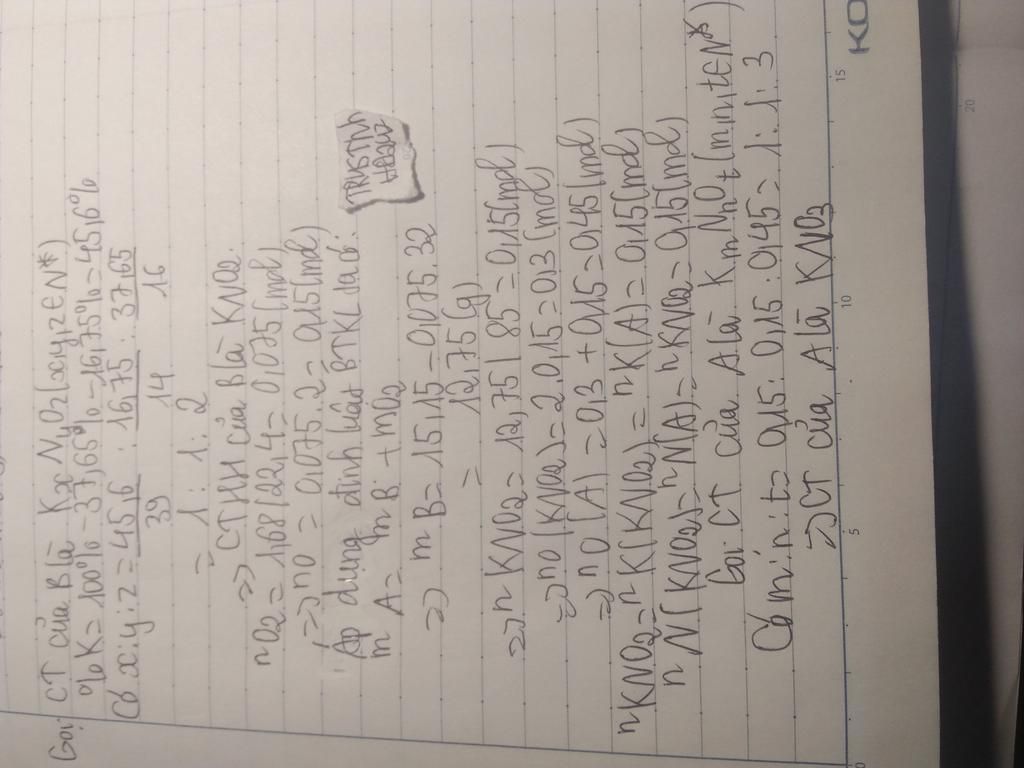 Gọi CT của B là KxNyOz (x,y,z∈N*)
%K = 100% - 37,65% - 16,75% = 45,6%
Có x:y:z = 45,6/39 : 16,75/14 : 37,65/16
= 1 : 1 : 2
=> CTHH của B là KNO2.
nO2 = 1,68/22,4 = 0,075 (mol)
=> nO = 0,075.2 = 0,15 (mol)
Áp dụng định luật BTKL ta có:
mA = mB + mO2
=> mB = 15,15 - 0,075.32
= 12,75 (g)
TRUSTNN
=> nKNO2 = 12,75/85 = 0,15 (mol)
=> nO (KNO2) = 2.0,15 = 0,3 (mol)
=> nO (A) = 0,3 + 0,15 = 0,45 (mol)
nKNO2 = nK (KNO2) = nK (A) = 0,15 (mol)
nN (KNO2) = nN (A) = nKNO2 = 0,15 (mol)
Gọi CT của A là KmNnOt (m,n,t∈N*)
Có m:n:t = 0,15 : 0,15 : 0,45 = 1 : 1 : 3
=> CT của A là KNO3
0 5 10 15
KO
20